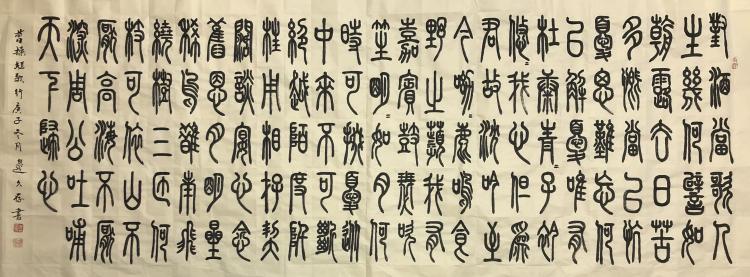 對酒當歌人
生幾何譬如
朝露去日苦
多慨當以慷
憂思難忘何
以解憂唯有
杜康青〻子衿
悠〻我心但為
君故沈吟至
今呦〻鹿鳴食
野之蘋我有
嘉賓鼓瑟吹
笙明〻如月何
時可掇憂從
中來不可斷
絕越陌度阡
枉用相存契
闊談宴心念
舊恩月明星
稀烏鵲南飛
繞樹三匝何
枝可依山不
厭高海不厭
深周公吐哺
天下歸心
曹操短歌行庚子冬月邊文存書